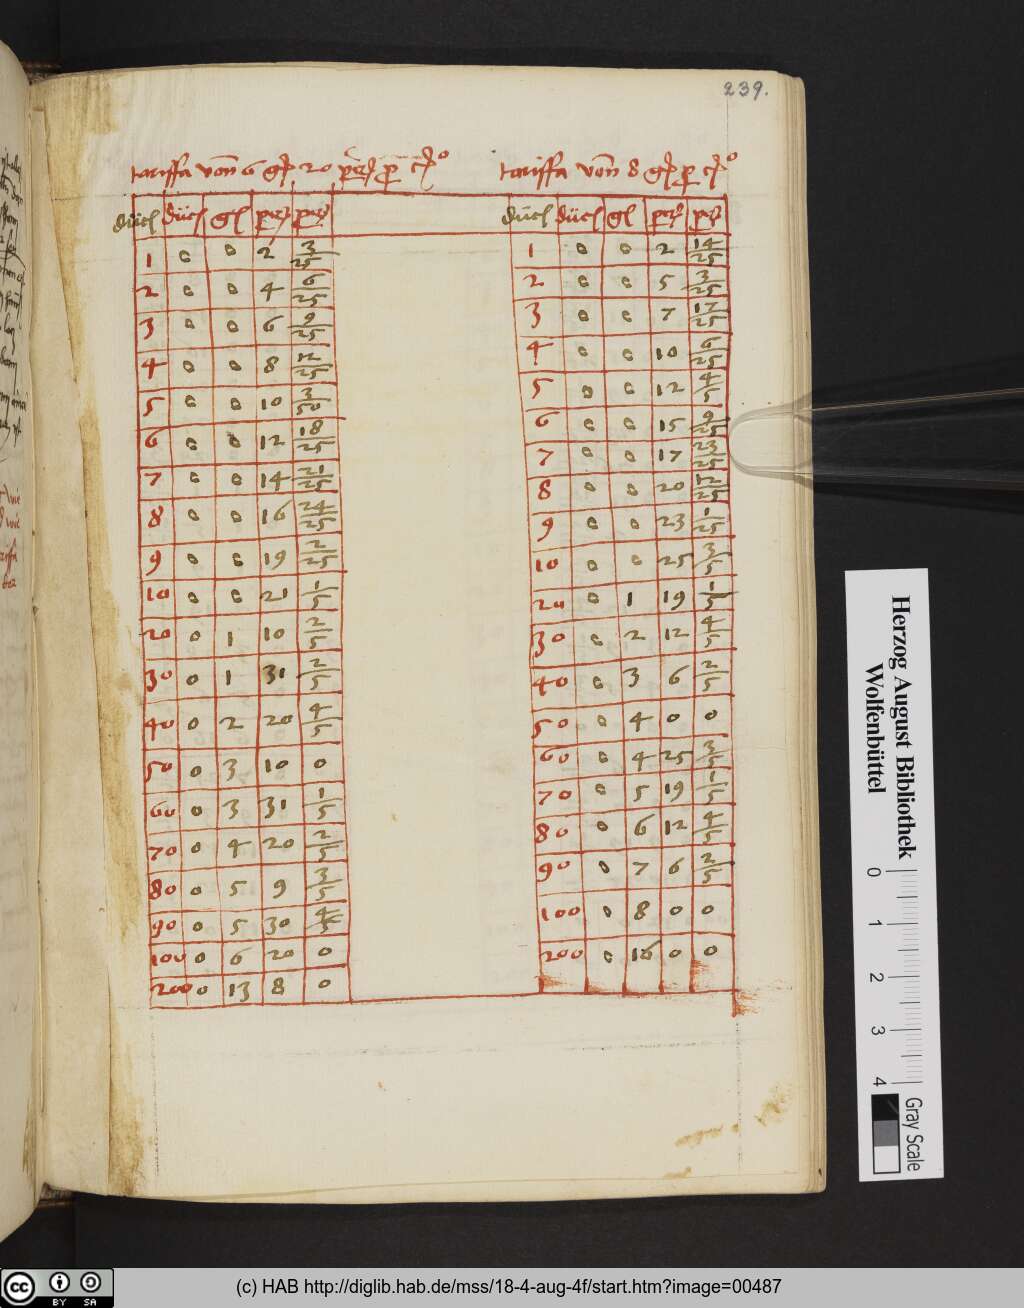 239.
tariffa vonn 6 gl 20 pc° 
tariffa vonn 8 gl
ducl ducl gl
1 0 0 2 3/25
2 0 0 4 6/25
3 0 0 6 9/25
4 0 0 8 12/25
5 0 0 10 3/20
6 0 0 12 18/25
7 0 0 14 21/25
8 0 0 16 24/25
9 0 0 19 2/25
10 0 0 21 1/5
20 0 1 10 2/5
30 0 1 31 2/5
40 0 2 20 4/5
50 0 3 10 0
60 0 3 31 1/5
70 0 4 20 2/5
80 0 5 9 3/5
90 0 5 30 4/5
100 0 6 20 0
200 0 13 8 0
ducl ducl gl
1 0 0 2 14/25
2 0 0 5 3/25
3 0 0 7 17/25
4 0 0 10 6/25
5 0 0 12 4/5
6 0 0 15 9/25
7 0 0 17 23/25
8 0 0 20 12/25
9 0 0 23 1/25
10 0 0 25 3/5
20 0 1 19 1/5
30 0 2 12 4/5
40 0 3 6 2/5
50 0 4 0 0
60 0 4 25 3/5
70 0 5 19 1/5
80 0 6 12 4/5
90 0 7 6 2/5
100 0 8 0 0
200 0 16 0 0
Herzog August Bibliothek
Wolfenbüttel
0 1 2 3 4
Gray Scale
cc BY SA
(c) HAB http://diglib.hab.de/mss/18-4-aug-4f/start.htm?image=00487